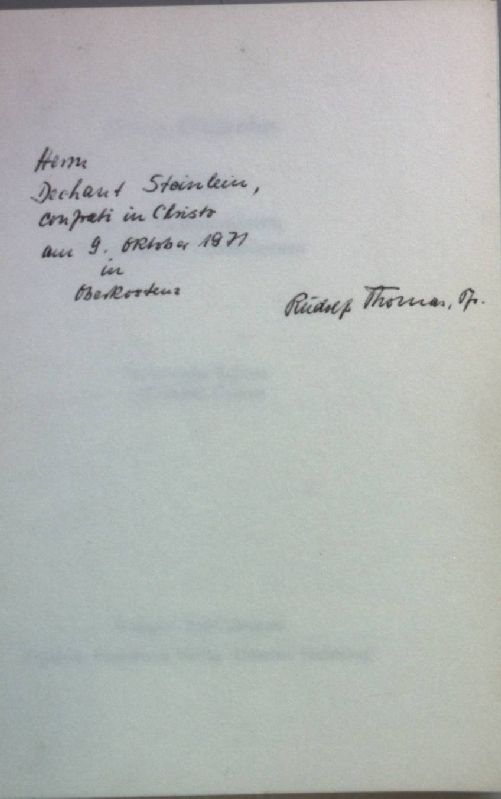 Herrn
Dechant Steinlein,
confrati in Christo
am 9. Oktober 1971
in
Oberkotzau
Rudolf Thomas, Pfr.